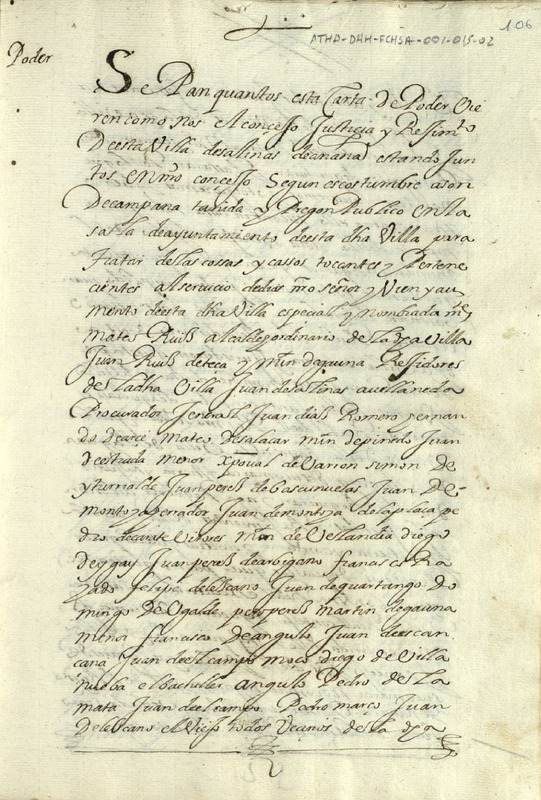 106
ATHA-DHH-FCHSA-001-015-02
Poder
Se Pan quantos esta Carta de Poder Vie
ren como nos el concejo Justicia y Regimio
De esta Villa de salinas de anana estando Jun
tos en nro concejo Segun es costumbre a son
De campana tanida y Pregon Publico en la
sala de ayuntamiento de esta dha Villa para
tratar de las cossas y cassos tocantes y Pertene
cientes al servicio de dios nro señor y Vien y au
mento de esta dha Villa especial y nombrada mte
mateo Ruiz alcalde ordinario de la dha Villa
Juan Ruiz de teca y min dajauna Regidores
de la dha Villa Juan de salinas avellaneda
Procurador Jeneral Juan diaz Romero fernan
do de arce mateo de salacar min de pinedo Juan
de estrada menor xpoual de Varron simon de
yturrialde Juan perez de bascunuelas Juan De
montoya Juan de montoya de la placa pe
dro de carate Vitores min de Vellandia diego
Juan perez de arbigano frances
felipe del escano Juan de quartango do
mingo de Ugalde perez martin de gauna
menor francisco de angulo Juan de escan
cana Juan del campo moço diego de Villa
nueba el bachiller angulo Pedro de la
mata Juan del campo Pedro marco Juan
Del escano el Viejo todos Vecinos de la dha